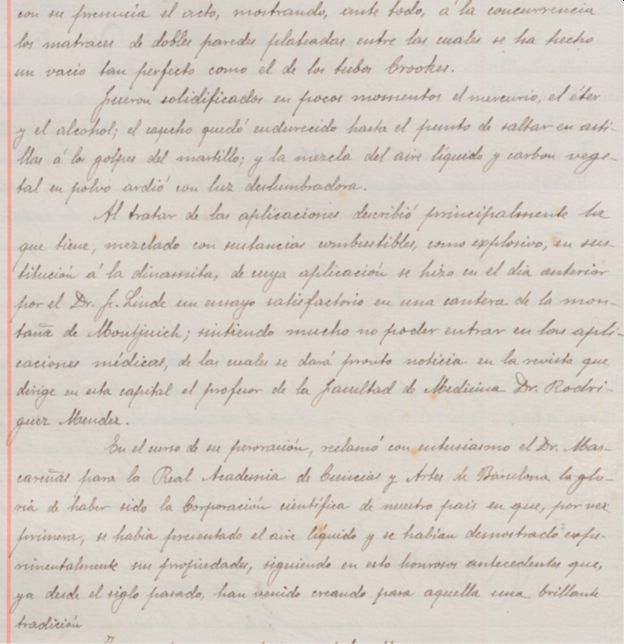 con su presencia el acto, mostrando, ante todo, á la concurrencia
los matraces de dobles paredes plateadas entre las cuales se ha hecho
un vacio tan perfecto como el de los tubos Crookes.
Fueron solidificados en pocos momentos el mercurio, el éter
y el alcohol; el caucho quedó endurecido hasta el punto de saltar en asti-
llas á los golpes del martillo; y la mezcla del aire líquido y carbon vege-
tal en polvo ardió con luz deslumbradora.
Al tratar de las aplicaciones describió principalmente la
que tiene, mezclado con sustancias combustibles, como explosivo, en sus-
titución á la dinamita, de cuya aplicación se hizo en el dia anterior
por el Dr. F. Linde un ensayo satisfactorio en una cantera de la mon-
taña de Montjuich; sintiendo mucho no poder entrar en las apli-
caciones médicas, de las cuales se dará pronto noticia en la revista que
dirige en esta capital el profesor de la Facultad de Medicina Dr. Rodri-
guez Mendez.
En el curso de su peroración, reclamó con entusiasmo el Dr. Mas-
careñas para la Real Academia de Ciencias y Artes de Barcelona la glo-
ria de haber sido la Corporación científica de nuestro pais en que, por vez
primera, se habia presentado el aire líquido y se habian demostrado expe-
rimentalmente sus propiedades, siguiendo en esto honrosos antecedentes que,
ya desde el siglo pasado, han venido creando para aquella una brillante
tradición